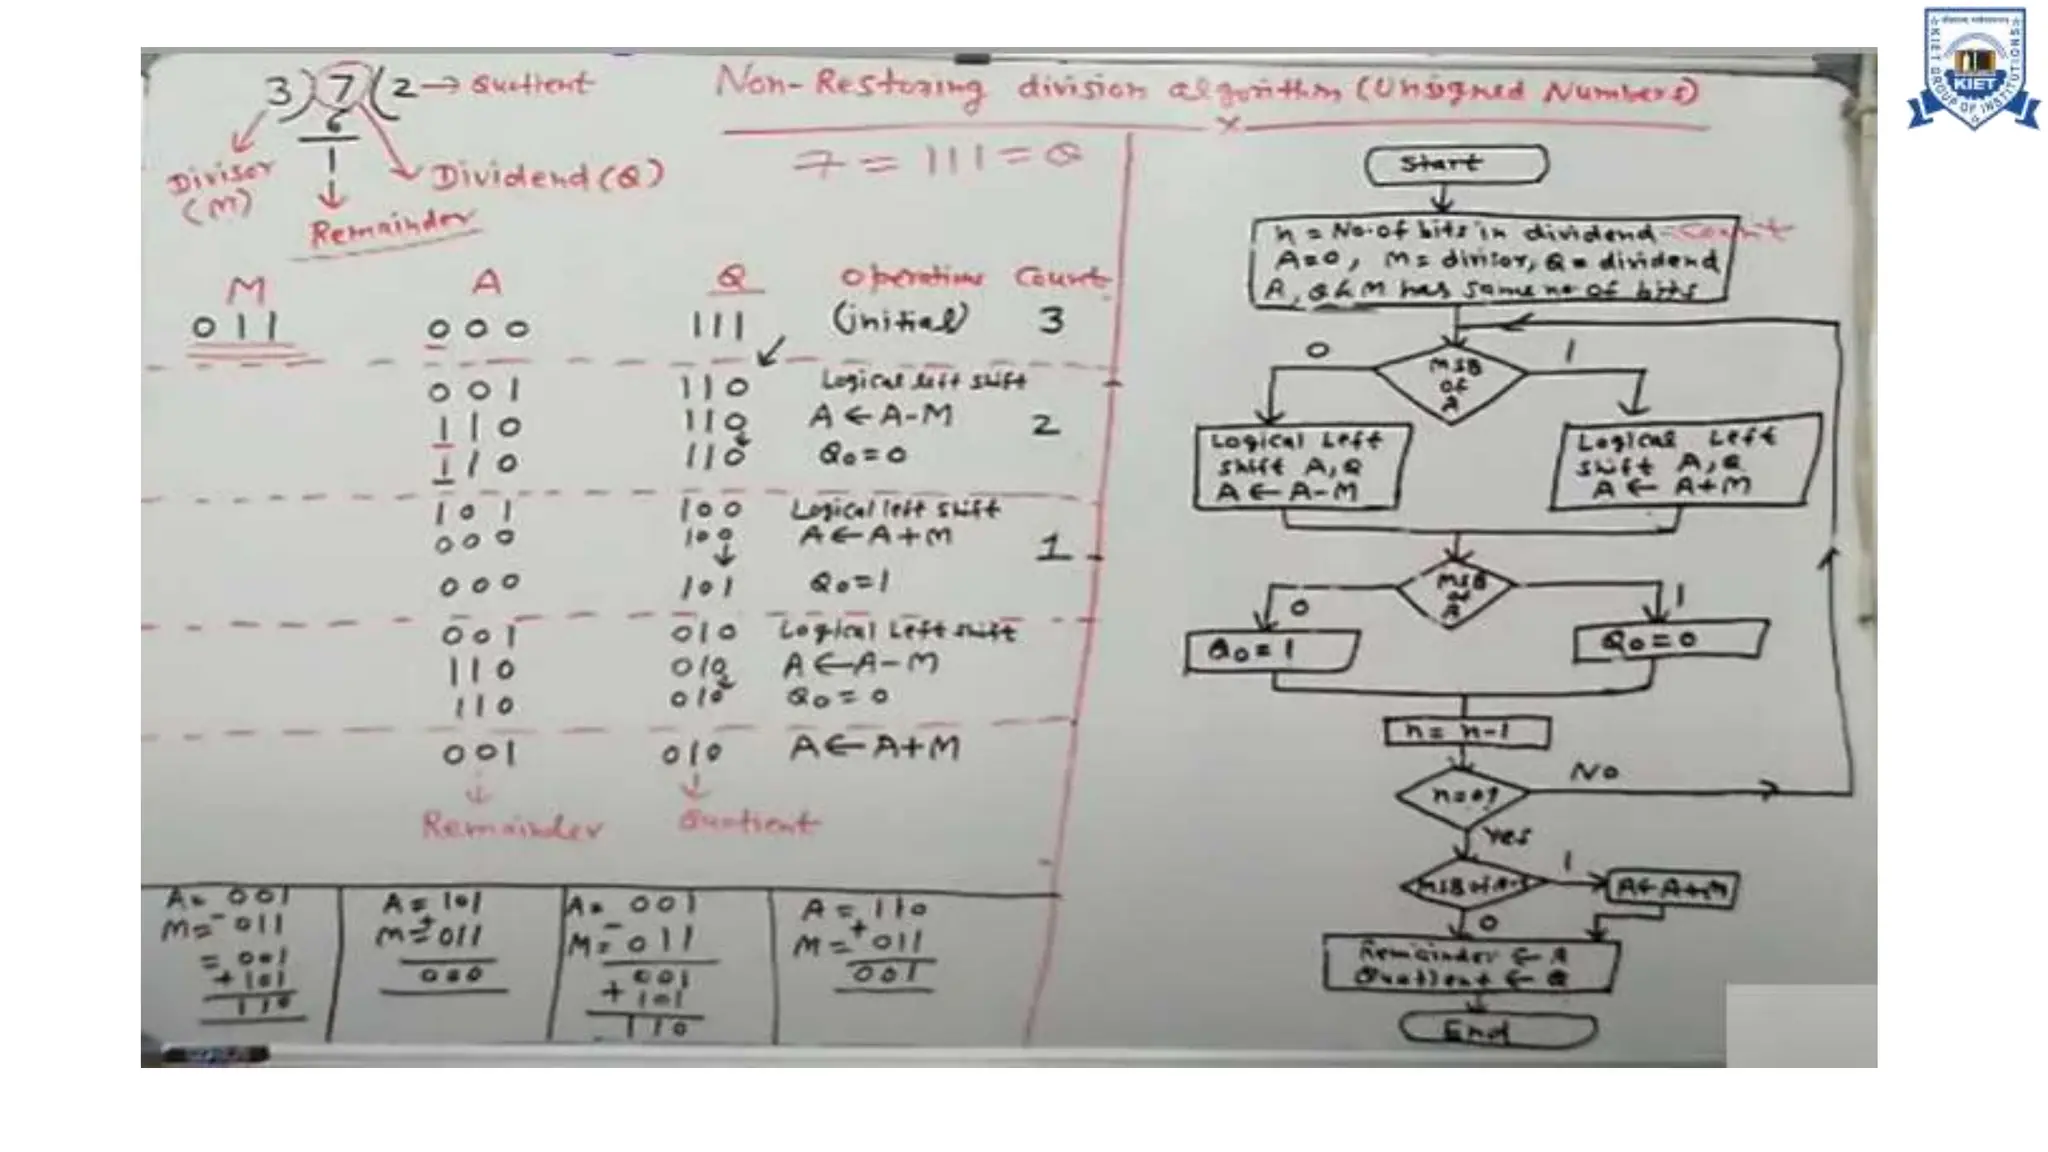 3) 7 (2 → Quotient
6
1
Divisor
(M)
Dividend (Q)
Remainder
Non-Restoring division algorithm (Unsigned Numbers)
7 = 111 = Q
M A Q Operation Count
011 000 111 (initial) 3
001 110 Logical left shift
110 110 A ← A-M 2
110 110 Q0=0
101 100 Logical left shift
000 100 A ← A+M 1
000 101 Q0=1
001 010 Logical Left shift
110 010 A ← A-M
110 010 Q0=0
001 010 A ← A+M
Remainder Quotient
A= 001
M= - 011
= 001
+ 101
110
A = 101
M= + 011
000
A= 001
M= - 011
001
+ 101
110
A = 110
M = + 011
001
Start
n = No. of bits in dividend - Count
A=0, M= divisor, Q = dividend
A, Q & M has same no of bits
MSB
of
A
0
1
Logical Left
shift A, Q
A ← A-M
Logical Left
shift A, Q
A ← A+M
MSB
of
A
0
1
Q0 = 1
Q0 = 0
n = n-1
n=0?
No
Yes
MSB of A
1
A ← A+M
0
Remainder ← A
Quotient ← Q
End
KIET GROUP OF INSTITUTIONS
KIET